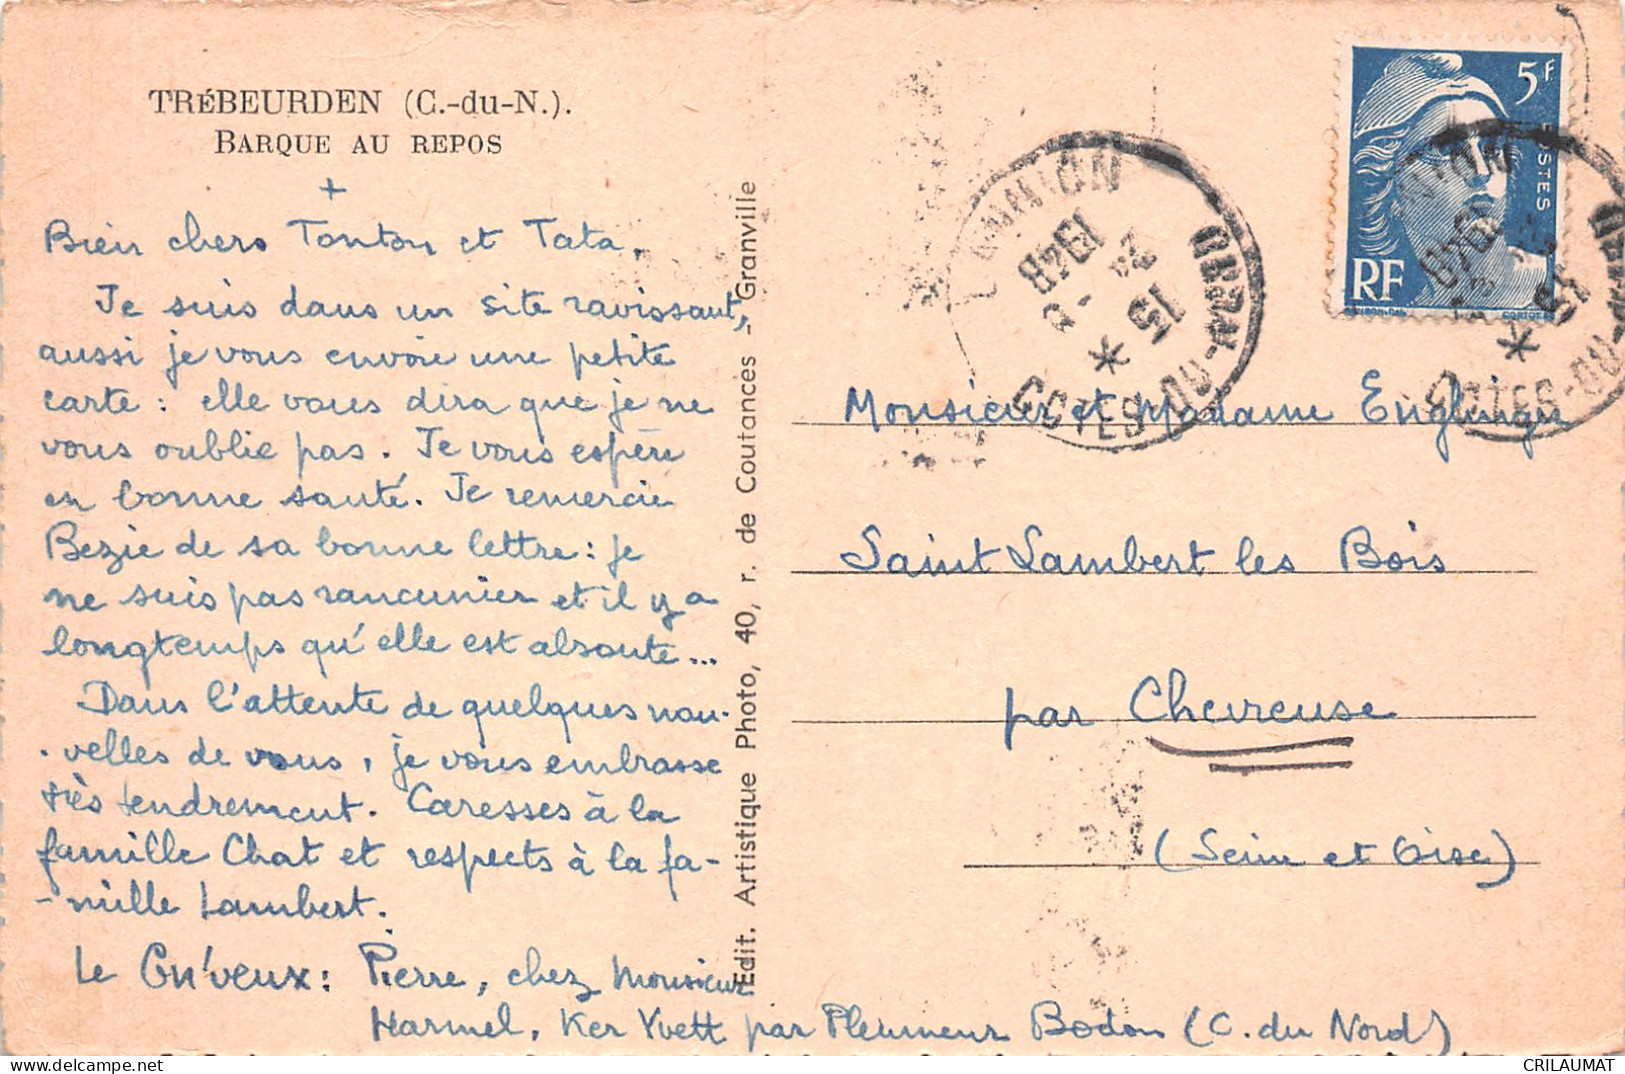 TRÉBEURDEN (C.-du-N.).
BARQUE AU REPOS
+
Bien chers Tonton et Tata,
Je suis dans un site ravissant,
aussi je vous envoie une petite
carte : elle vous dira que je ne
vous oublie pas. Je vous espère
en bonne santé. Je remercie
Bezie de sa bonne lettre : je
ne suis pas rancunier et il y a
longtemps qu'elle est absoute...
Dans l'attente de quelques nou-
-velles de vous, je vous embrasse
très tendrement. Caresses à la
famille Chat et respects à la fa-
-mille Lambert.
Le Gn'veux : Pierre, chez Monsieur
Harmel, Ker Yvett par Pleumeur Bodou (C. du Nord)
Edit. Artistique Photo, 40, r. de Coutances - Granville
LANNION
15 *
2 - 8
1948
COTES-DU-NORD
5F
POSTES
RF
Monsieur et Madame Englinger
Saint Lambert les Bois
par Chevreuse
(Seine et Oise)
CRILAUMAT